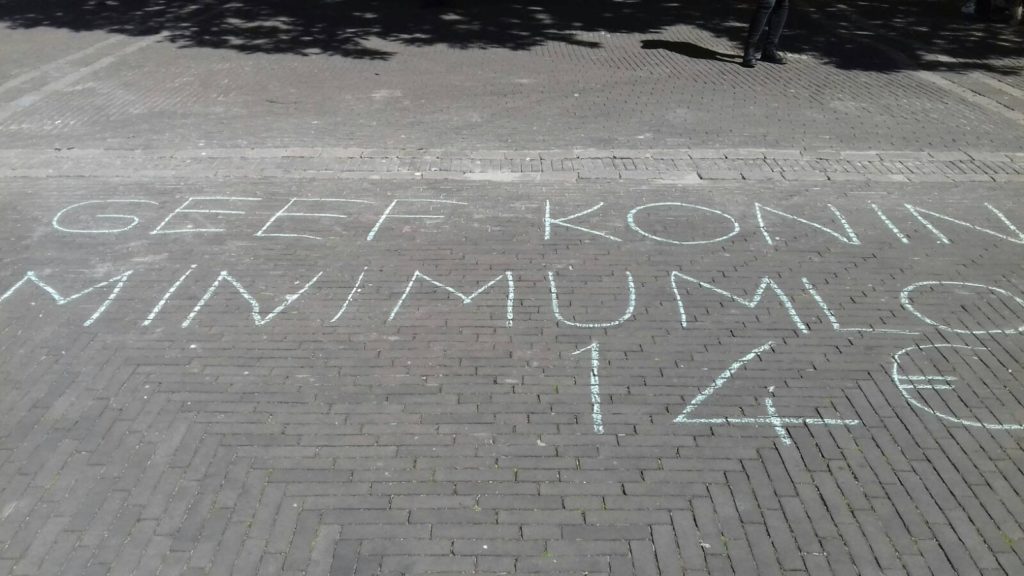 GEEF KONIN
MINIMUMLO
14 €